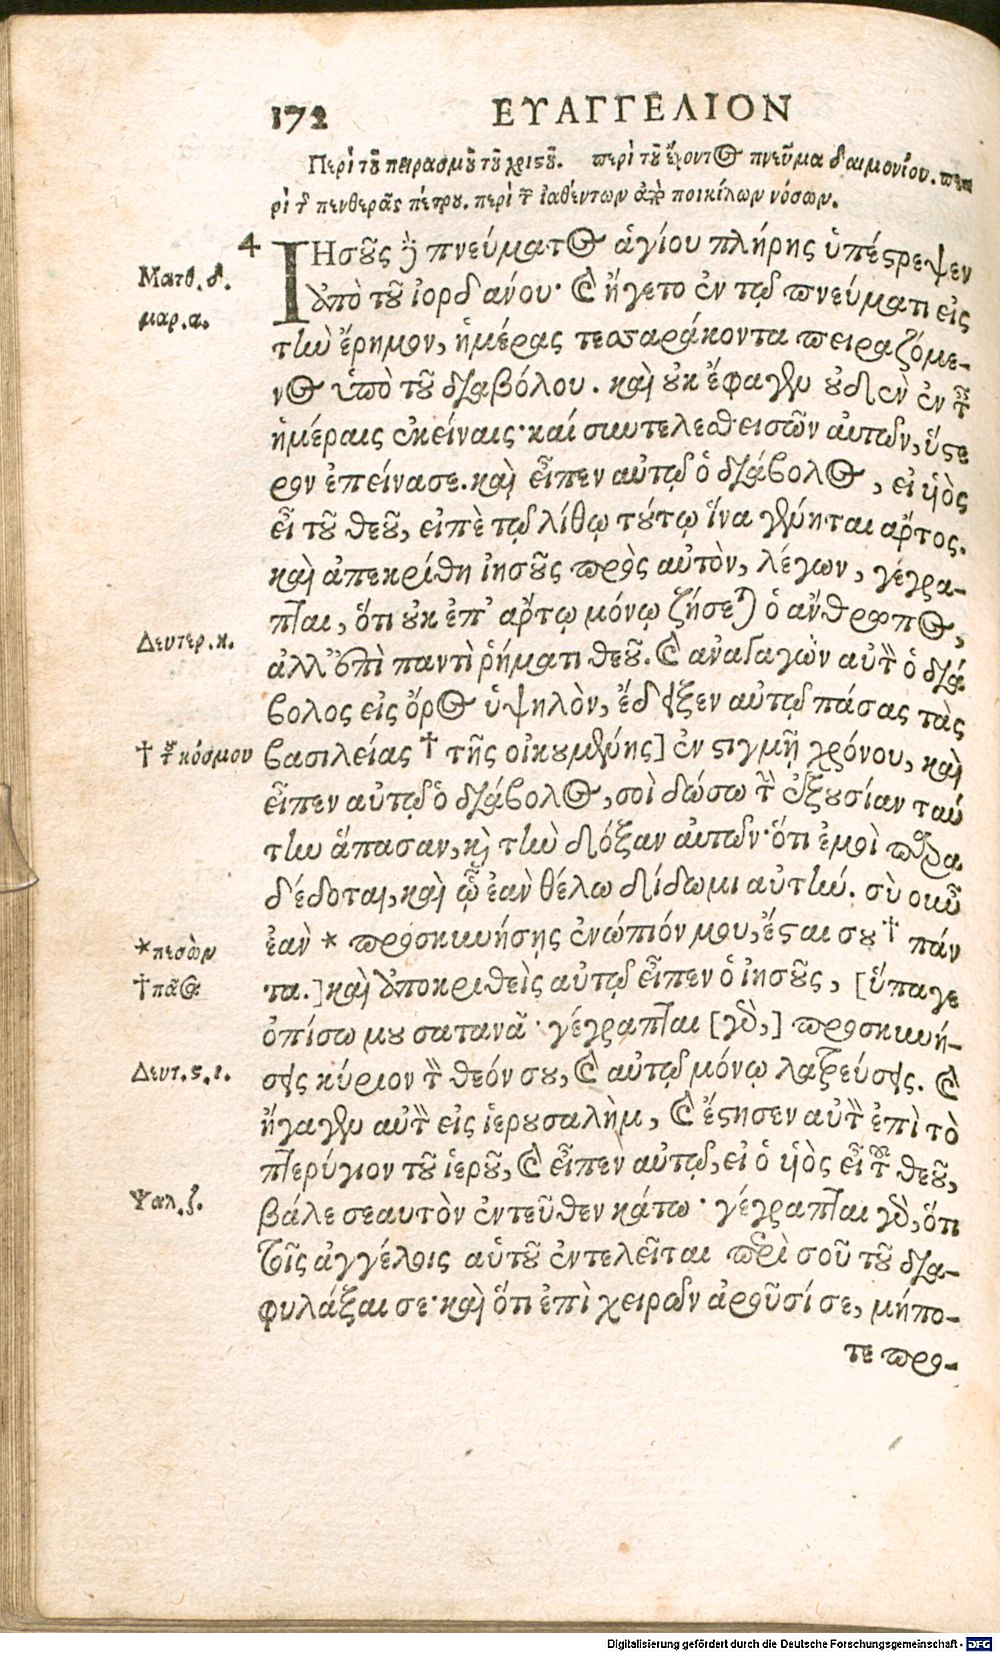 172 ΕΥΑΓΓΕΛΙΟΝ
Περὶ τοῦ πειρασμοῦ τοῦ χριστοῦ. περὶ τοῦ ἔχοντος πνεῦμα δαιμονίου. πε-
ρὶ τῆς πενθερᾶς πέτρου. περὶ τῶν ἰαθέντων ἀπὸ ποικίλων νόσων.
4 ΙΗσοῦς δὲ πνεύματος ἁγίου πλήρης ὑπέστρεψεν
Ματθ. δ.
ἀπὸ τοῦ ἰορδάνου· καὶ ἤγετο ἐν τῷ πνεύματι εἰς
μαρ. α.
τὴν ἔρημον, ἡμέρας τεσσαράκοντα πειραζόμε-
νος ὑπὸ τοῦ διαβόλου. καὶ οὐκ ἔφαγεν οὐδὲν ἐν ταῖς
ἡμέραις ἐκείναις· καὶ συντελεσθεισῶν αὐτῶν, ὕστε
ρον ἐπείνασε. καὶ εἶπεν αὐτῷ ὁ διάβολος, εἰ υἱὸς
εἶ τοῦ θεοῦ, εἰπὲ τῷ λίθῳ τούτῳ ἵνα γένηται ἄρτος.
καὶ ἀπεκρίθη ἰησοῦς πρὸς αὐτὸν, λέγων, γέγρα-
πται, ὅτι οὐκ ἐπ' ἄρτῳ μόνῳ ζήσεται ὁ ἄνθρωπος,
Δευτερ. κ.
ἀλλ' ἐπὶ παντὶ ῥήματι θεοῦ. καὶ ἀναγαγὼν αὐτὸν ὁ διά
βολος εἰς ὄρος ὑψηλὸν, ἔδειξεν αὐτῷ πάσας τὰς
† τοῦ κόσμου
βασιλείας † τῆς οἰκουμένης] ἐν στιγμῇ χρόνου, καὶ
εἶπεν αὐτῷ ὁ διάβολος, σοὶ δώσω τὴν ἐξουσίαν ταύ
την ἅπασαν, καὶ τὴν δόξαν αὐτῶν· ὅτι ἐμοὶ παρα
δέδοται, καὶ ᾧ ἐὰν θέλω δίδωμι αὐτήν. σὺ οὖν
ἐὰν * προσκυνήσῃς ἐνώπιόν μου, ἔσται σου † πάν
* πεσὼν
† πᾶσα
τα.] καὶ ἀποκριθεὶς αὐτῷ εἶπεν ὁ ἰησοῦς, [ὕπαγε
ὀπίσω μου σατανᾶ· γέγραπται [γὰρ,] προσκυνή-
Δευτ. ς. ι.
σεις κύριον τὸν θεόν σου, καὶ αὐτῷ μόνῳ λατρεύσεις. καὶ
ἤγαγεν αὐτὸν εἰς ἱερουσαλὴμ, καὶ ἔστησεν αὐτὸν ἐπὶ τὸ
πτερύγιον τοῦ ἱεροῦ, καὶ εἶπεν αὐτῷ, εἰ ὁ υἱὸς εἶ τοῦ θεοῦ,
Ψαλ. ζ.
βάλε σεαυτὸν ἐντεῦθεν κάτω· γέγραπται γὰρ, ὅτι
τοῖς ἀγγέλοις αὑτοῦ ἐντελεῖται περὶ σοῦ τοῦ δια-
φυλάξαι σε· καὶ ὅτι ἐπὶ χειρῶν ἀροῦσί σε, μήπο-
τε προ-
Digitalisierung gefördert durch die Deutsche Forschungsgemeinschaft - DFG